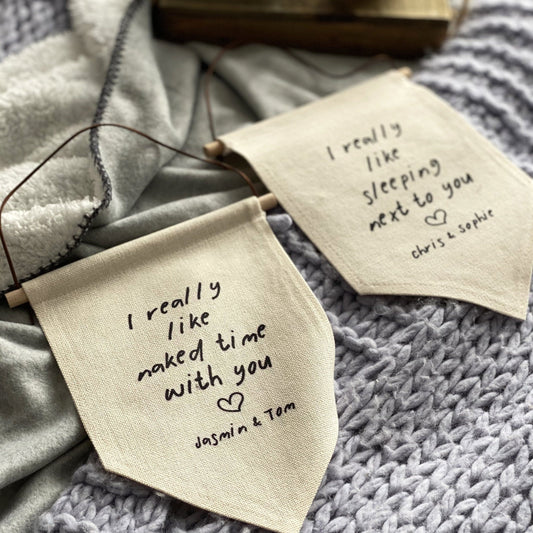 I really
like
naked time
with you
♡
Jasmin & Tom
I really
like
sleeping
next to you
♡
Chris & Sophie